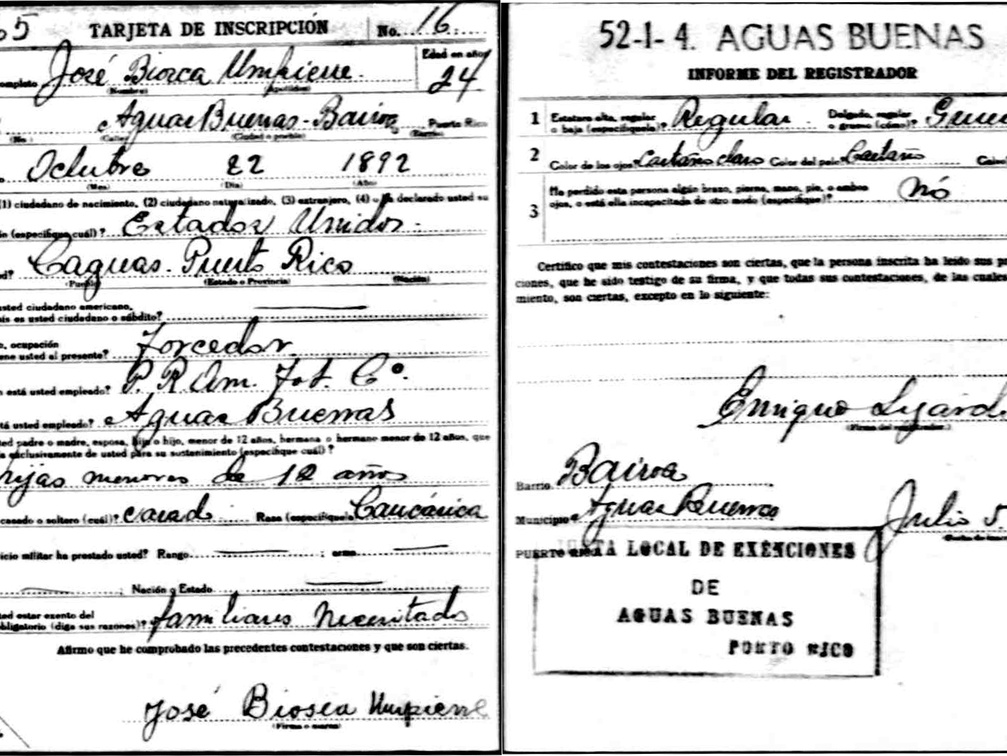 65 TARJETA DE INSCRIPCIÓN No. 16
completo José Biosca Umpierre. Edad en años 24
(Nombre) (Apellidos)
Aguas Buenas - Bairoa Puerto Rico
(No.) (Calle) (Ciudad o pueblo) (Barrio)
Octubre 22 1892
(Mes) (Día) (Año)
(1) ciudadano de nacimiento, (2) ciudadano naturalizado, (3) extranjero, (4) o ha declarado usted su
(especifique cuál)? Estados Unidos.
Caguas. Puerto Rico
(Pueblo) (Estado o Provincia) (Nación)
usted ciudadano americano,
país es usted ciudadano o súbdito?
ocupación
tiene usted al presente? Torcedor
está usted empleado? P. R. Am. Tob. Co.
está usted empleado? Aguas Buenas
usted padre o madre, esposa, hijo o hijo, menor de 12 años, hermana o hermano menor de 12 años, que
exclusivamente de usted para su sustenimiento (especifique cuál)?
hijas menores de 12 años
casado o soltero (cuál)? casado Raza (especifíquela) Caucásica
servicio militar ha prestado usted? Rango ; arma
Nación o Estado
usted estar exento del
obligatorio (diga sus razones)? familiares necesitado
Afirmo que he comprobado las precedentes contestaciones y que son ciertas.
José Biosca Umpierre
(Firma o marca)
52-1-4. AGUAS BUENAS
INFORME DEL REGISTRADOR
1 Estatura alta, regular o baja (especifíquela)? Regular. Delgado, regular o grueso (cómo)?
2 Color de los ojos? Castaño claro Color del pelo? Castaño
3 Ha perdido esta persona algún brazo, pierna, mano, pie, o ambos
ojos, o está ella incapacitada de otro modo (especifique)? nó
Certifico que mis contestaciones son ciertas, que la persona inscrita ha leído sus
ciones, que he sido testigo de su firma, y que todas sus contestaciones, de las cuales
miento, son ciertas, excepto en lo siguiente:
Enrique
Barrio Bairoa
Municipio Aguas Buenas Julio 5
PUERTO RICO
JUNTA LOCAL DE EXENCIONES
DE
AGUAS BUENAS
PORTO RICO